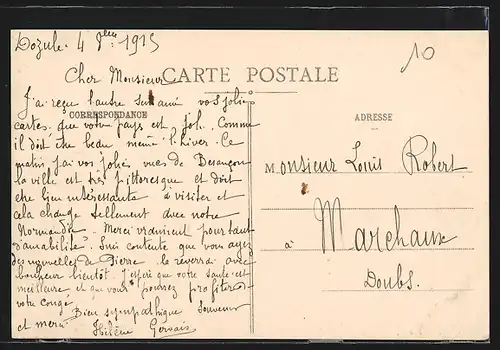 Dozulé. 4 Xbre 1915
10
Cher Monsieur
CARTE POSTALE
J'ai reçu l'autre semaine vos jolies
CORRESPONDANCE
ADRESSE
cartes, que votre pays est joli. Comme
il doit être beau même l'hiver. Ce
matin j'ai vos jolies vues de Besançon
la ville est très pittoresque et doit
être bien intéressante à visiter et
cela change tellement avec notre
Normandie. Merci vraiment pour tant
d'amabilité. Suis contente que vous ayez
des nouvelles de Pierre. le reverrai avec
bonheur bientôt. J'espère que votre santé est
meilleure et que vous pourrez profiter
votre congé.
Bien sympathique souvenir
et merci
Hélène Gervais
Monsieur Louis Robert
à Marchaux
Doubs.